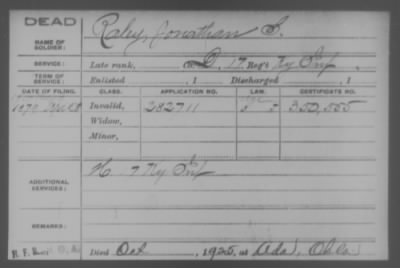 DEAD
NAME OF SOLDIER: Raley, Jonathan S.
SERVICE: Late rank, Co. D, 17 Reg't Ky Inf
TERM OF SERVICE: Enlisted , 1 Discharged , 1
DATE OF FILING. CLASS. APPLICATION NO. LAW. CERTIFICATE NO.
1879 Invalid, 282711 350,555
Widow,
Minor,
ADDITIONAL SERVICES: H 7 Ky Inf
REMARKS:
Died Oct , 1925, at Ada, Okla